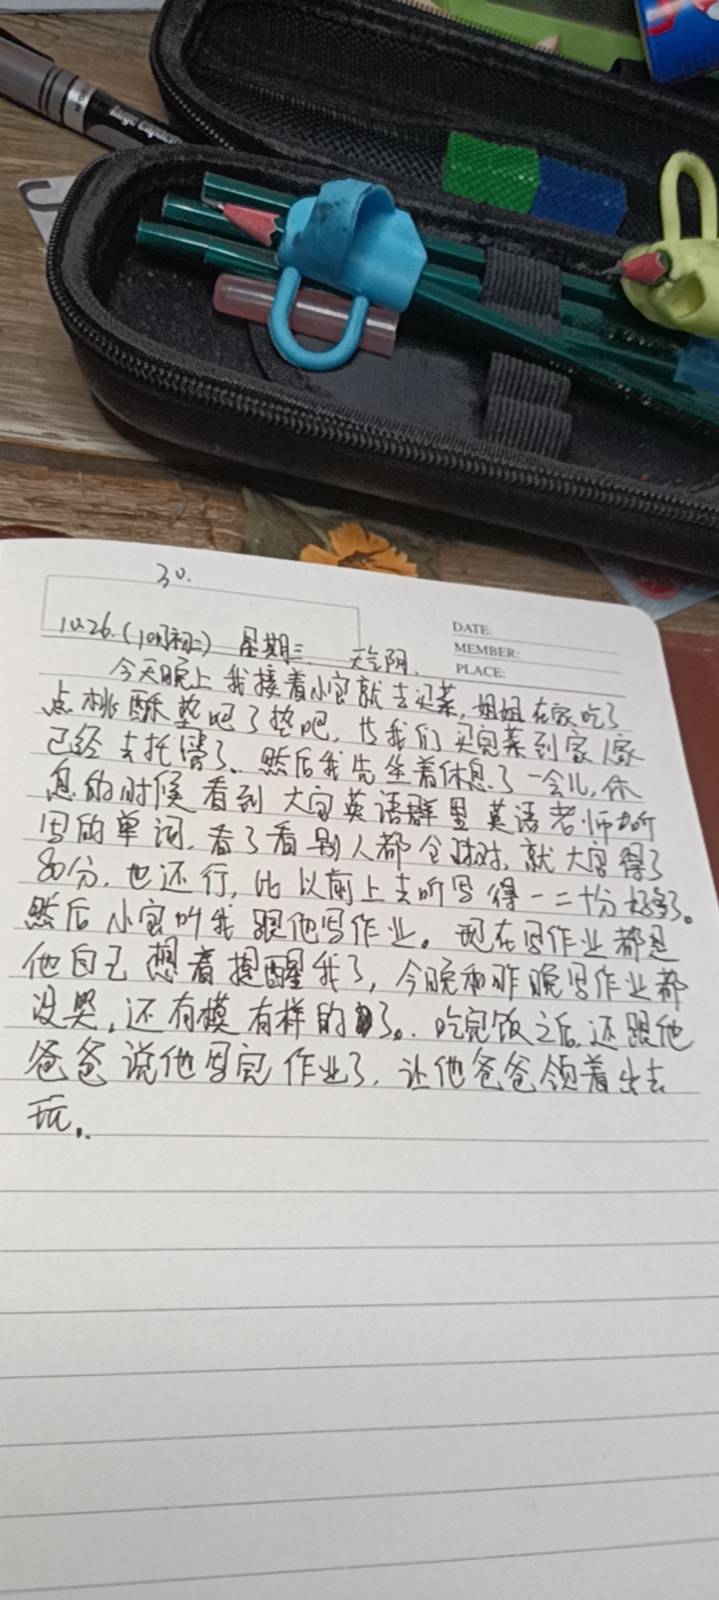 30.
10.26.(10月初二) 星期三. 天气阴.
DATE:
MEMBER:
PLACE:
今天晚上我接着小宝就去买菜,姐姐在家吃了
点桃酥垫吧了垫吧,当我们买完菜到家人家
已经去托管了。然后我先坐着休息了一会儿,休
息的时候看到大宝英语群里英语老师听
写的单词,看了看别人都全对,就大宝得了
80分,也还行,比以前上去听写得一二十分好多了。
然后小宝叫我跟他写作业。现在写作业都是
他自己想着提醒我了,今晚和昨晚写作业都
没哭,还有模有样的了。吃完饭之后,还跟他
爸爸说他写完作业了,让他爸爸领着出去
玩。